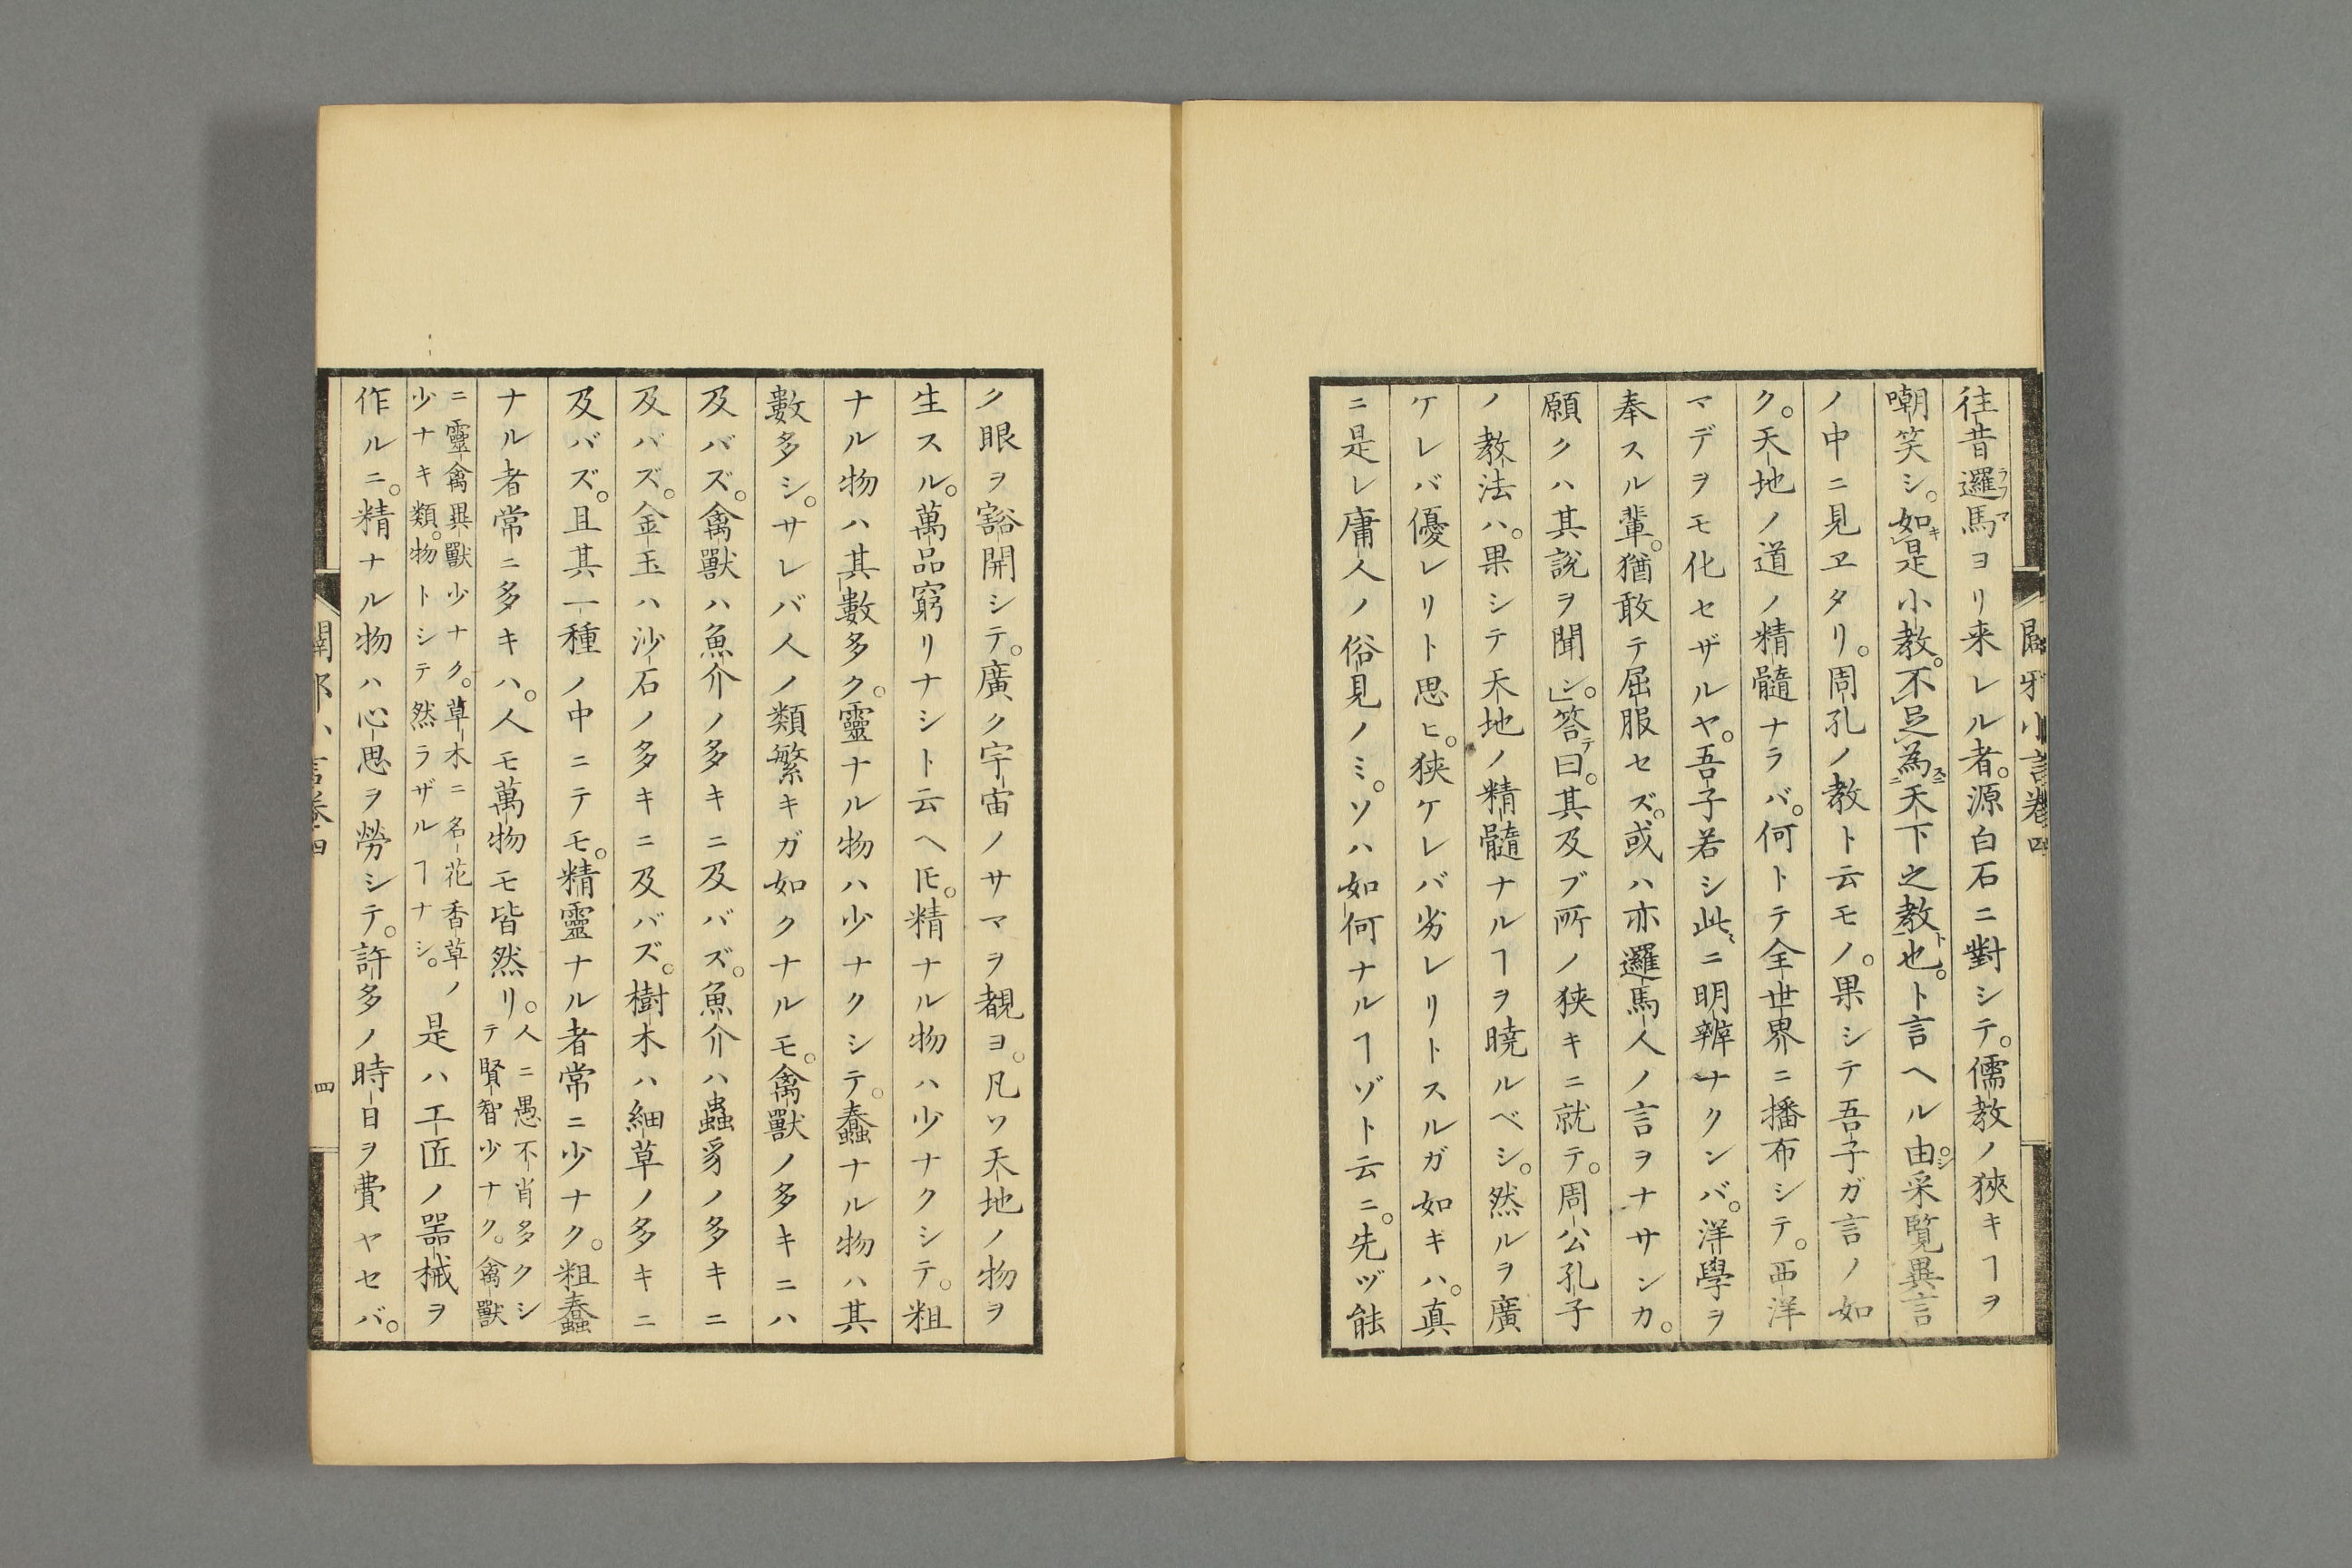 闢邪小言卷四
往昔邏馬ヨリ来レル者。源白石ニ對シテ。儒教ノ狹キヿヲ
嘲笑シ。如是小教。不足為天下之教也。ト言ヘル由。采覧異言
ノ中ニ見ヱタリ。周孔ノ教ト云モノ。果シテ吾子ガ言ノ如
ク。天地ノ道ノ精髓ナラバ。何トテ全世界ニ播布シテ。西洋
マデヲモ化セザルヤ。吾子若シ此ニ明辨ナクンバ。洋學ヲ
奉スル輩。猶敢テ屈服セズ。或ハ亦邏馬人ノ言ヲナサンカ。
願クハ其説ヲ聞シ。」答曰。其及ブ所ノ狭キニ就テ。周公孔子
ノ教法ハ。果シテ天地ノ精髓ナルヿヲ曉ルベシ。然ルヲ廣
ケレバ優レリト思ヒ。狭ケレバ劣レリトスルガ如キハ。真
ニ是レ庸人ノ俗見ノミ。ソハ如何ナルヿゾト云ニ。先ヅ能
ク眼ヲ豁開シテ。廣ク宇宙ノサマヲ覩ヨ。凡ソ天地ノ物ヲ
生スル。萬品窮リナシト云ヘ𪜈。精ナル物ハ少ナクシテ。粗
ナル物ハ其數多ク。靈ナル物ハ少ナクシテ。蠢ナル物ハ其
數多シ。サレバ人ノ類繁キガ如クナルモ。禽獸ノ多キニハ
及バズ。禽獸ハ魚介ノ多キニ及バズ。魚介ハ蟲豸ノ多キニ
及バズ。金玉ハ沙石ノ多キニ及バズ。樹木ハ細草ノ多キニ
及バズ。且其一種ノ中ニテモ。精靈ナル者常ニ少ナク。粗蠢
ナル者常ニ多キハ。人モ萬物モ皆然リ。
人ニ愚不肖多クシ
テ賢智少ナク。禽獸
ニ靈禽異獸少ナク。草木ニ名花香草ノ
少ナキ類。物トシテ然ラザルヿナシ。
是ハ工匠ノ器械ヲ
作ルニ。精ナル物ハ心思ヲ勞シテ。許多ノ時日ヲ費ヤセバ。
闢邪小言卷四
四